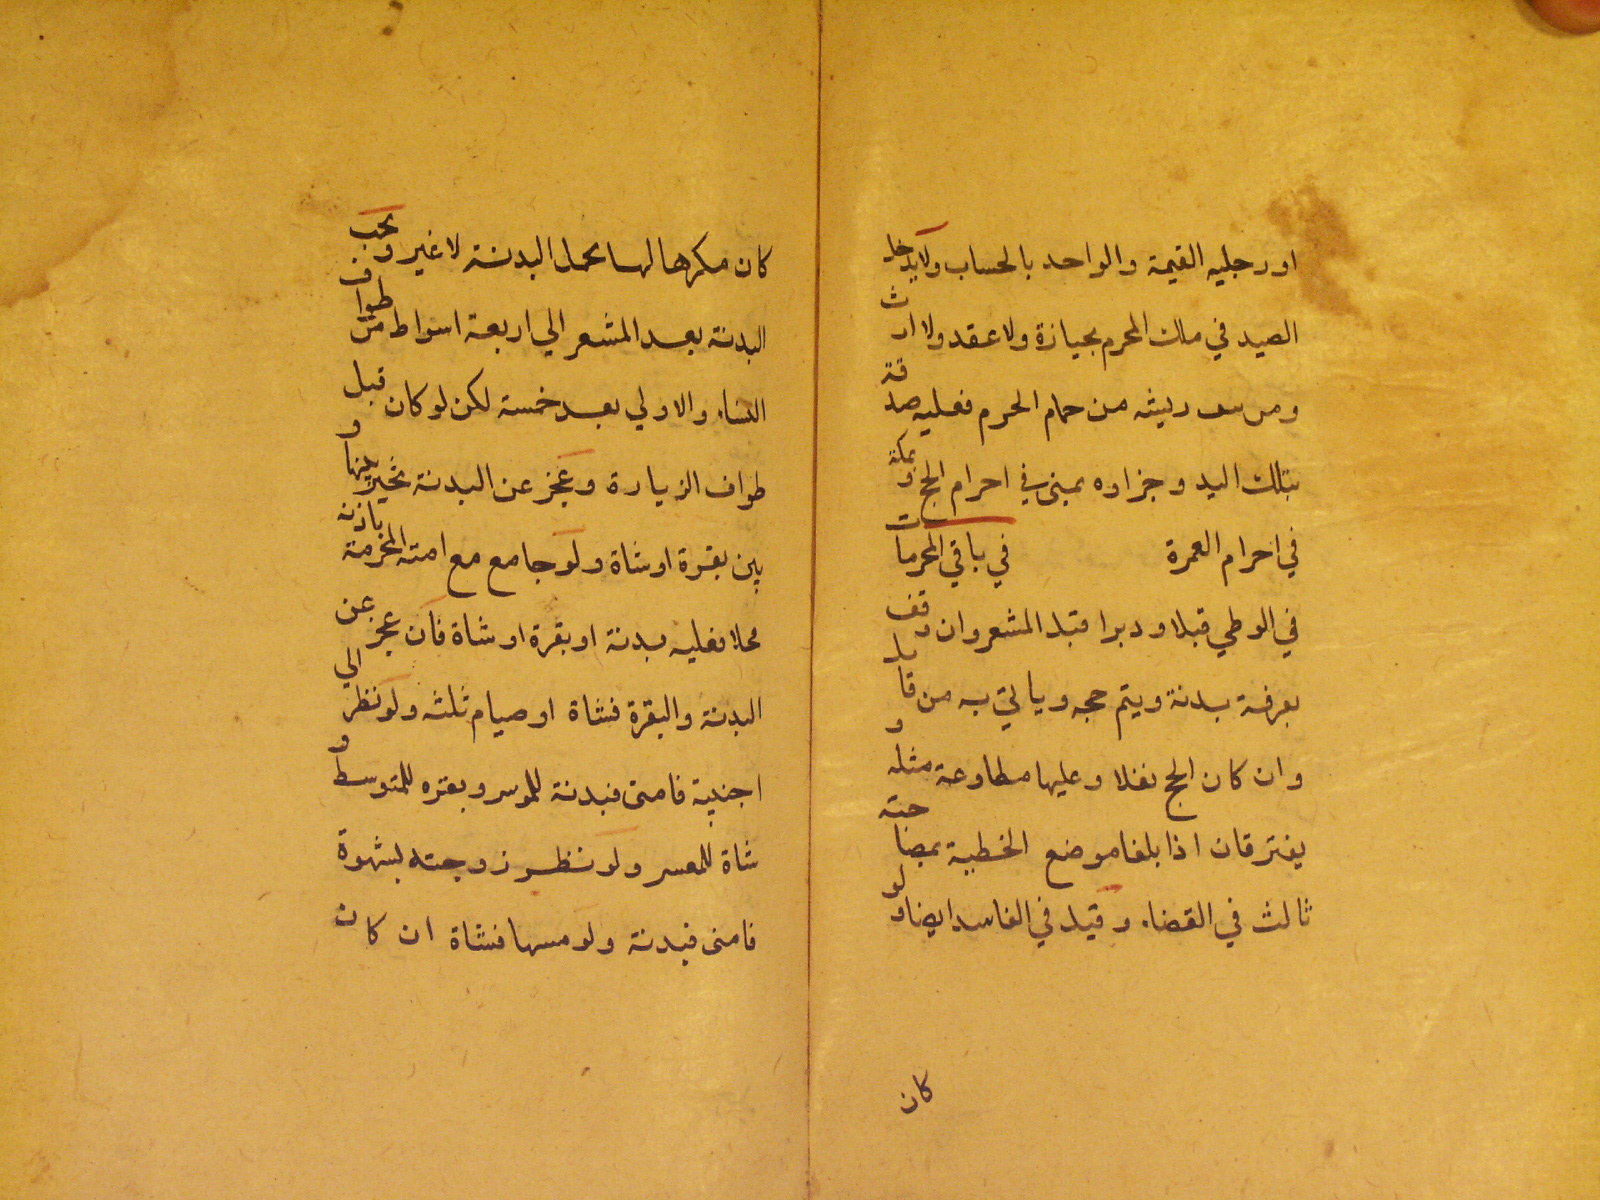 او رجليه القيمة والواحد بالحساب ولا يدخل
الصيد في ملك المحرم بحيازة ولا عقد ولا ارث
ومن ريشه من حمام الحرم فعليه صدقة
بتلك اليد وجزاوه بمنى في احرام الحج وبمكة
في احرام العمرة في باقي المحرمات
في الوطي قبلا ودبرا قبل المشعر وان وقف
بعرفة بدنة ويتم حجه وياتي به من قابل
وان كان الحج نفلا وعليها مطاوعة مثله و
يفترقان اذا بلغا موضع الخطية بمصاحبة
ثالث في القضاء وقيل في الفاسد ايضا ولو
كان
كان مكرها لها تحمل البدنة لا غير وتجب
البدنة بعد المشعر الي اربعة اسواط من طواف
النساء والاولي بعد خمسة لكن لو كان قبل
طواف الزيارة وعجز عن البدنة تخير بينها و
بين بقرة او شاة ولو جامع مع امته المحرمة باذنه
محلا فعليه بدنة او بقرة او شاة فان عجز عن
البدنة والبقرة فشاة او صيام ثلثه ولو نظر الي
اجنبية فامنى فبدنة للموسر وبقره للمتوسط و
شاة للمعسر ولو نظر زوجته بشهوة
فامنى فبدنة ولو مسها فشاة ان كان